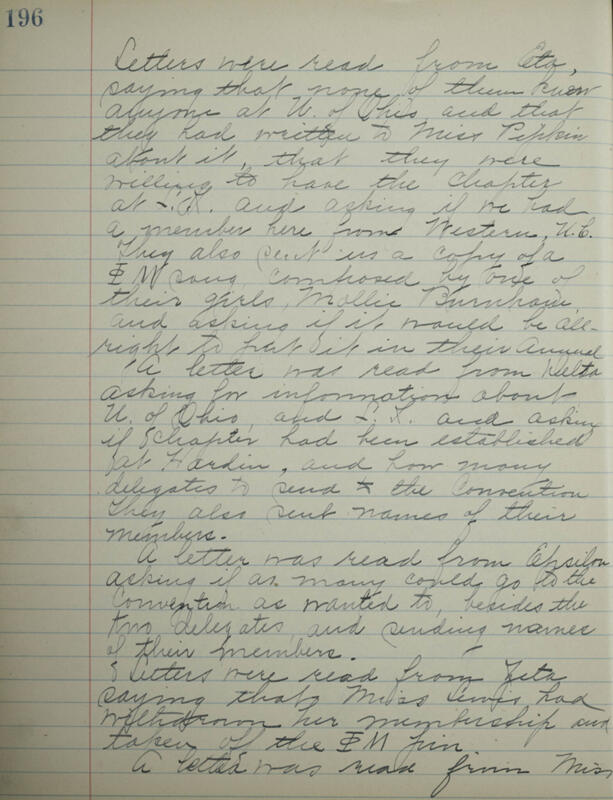 196
Letters were read from Eta,
saying that none of them knew
anyone at U. of Ohio and that
they had written to Miss Pipkin
about it, that they were
willing to have the chapter
at S.K. and asking if we had
a member here from Western, U.C.
They also sent us a copy of a
ΦM song, composed by one of
their girls, Mollie Burnham,
and asking if it would be all-
right to put it in their Annual
A letter was read from Delta
asking for information about
U. of Ohio, and S.K. and asking
if chapter had been established
at Hardin, and how many
delegates to send to the Convention
They also sent names of their
members.
A letter was read from Epsilon
asking if as many could go to the
Convention as wanted to, besides the
two delegates, and sending names
of their members.
Letters were read from Zeta
saying that Miss Lewis had
withdrawn her membership and
taken off the ΦM pin.
A letter was read from Miss